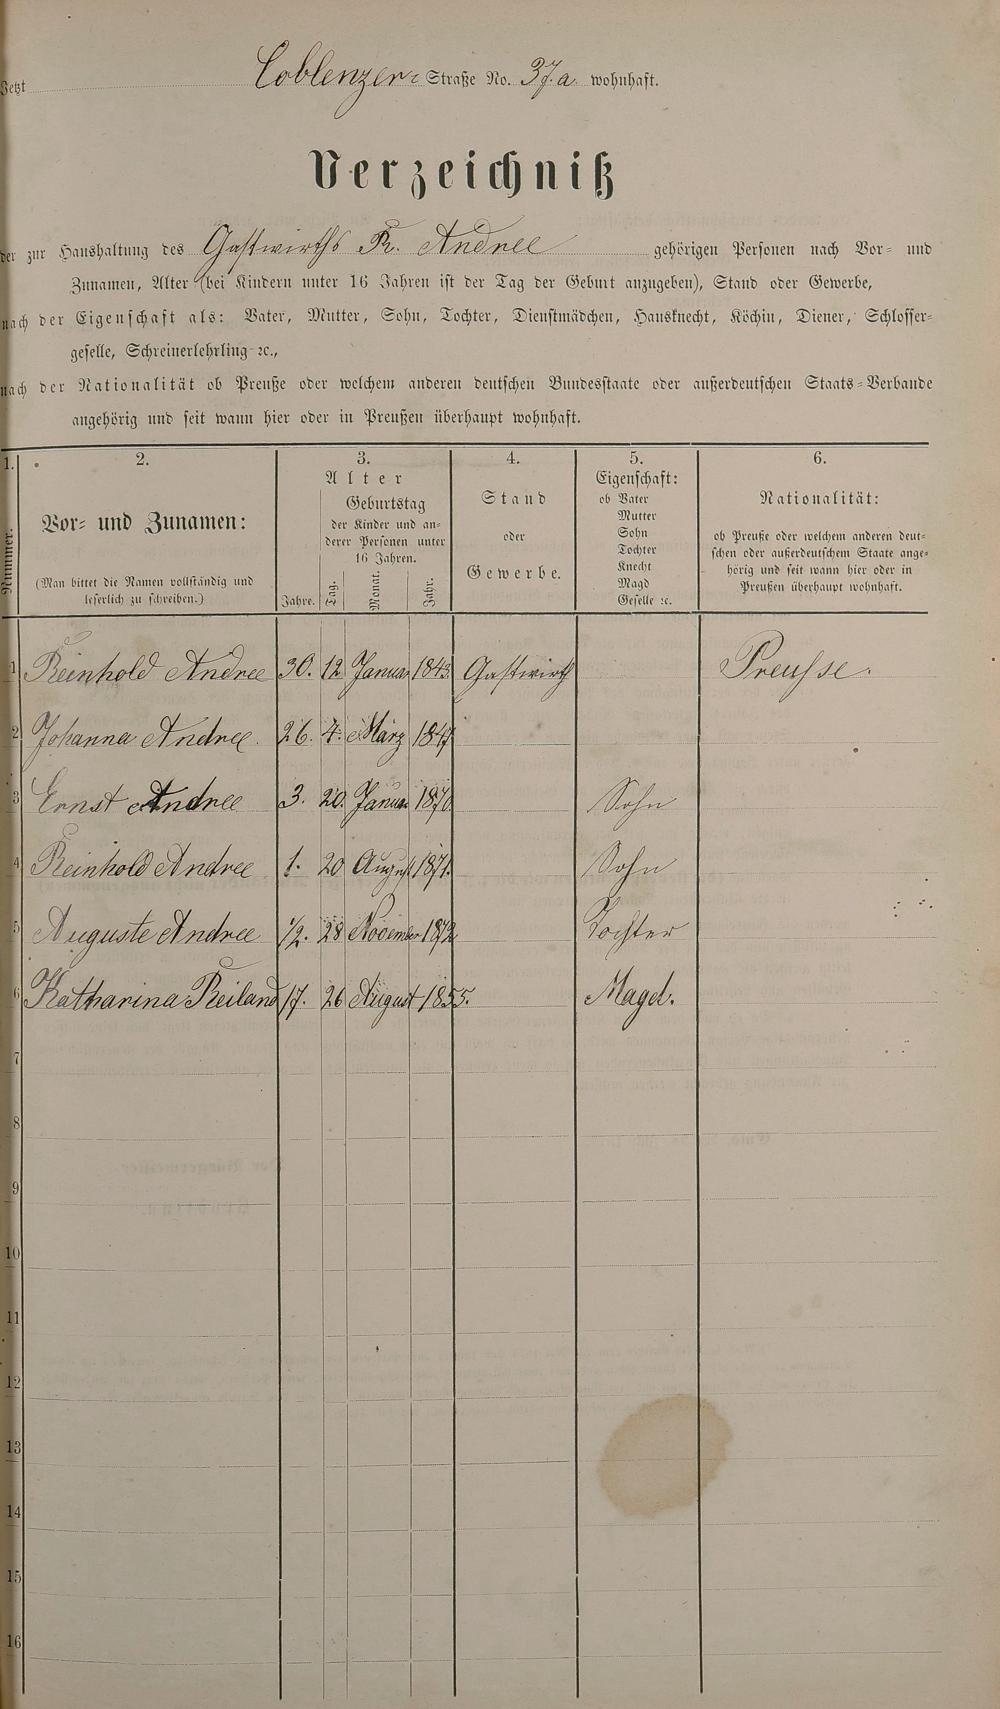 Jetzt Coblenzer- Straße No. 37.a. wohnhaft.
Verzeichniß
der zur Haushaltung des Gastwirths R. Andree gehörigen Personen nach Vor- und
Zunamen, Alter (bei Kindern unter 16 Jahren ist der Tag der Geburt anzugeben), Stand oder Gewerbe,
nach der Eigenschaft als: Vater, Mutter, Sohn, Tochter, Dienstmädchen, Hausknecht, Köchin, Diener, Schlosser-
geselle, Schreinerlehrling ꝛc.,
nach der Nationalität ob Preuße oder welchem anderen deutschen Bundesstaate oder außerdeutschen Staats-Verbande
angehörig und seit wann hier oder in Preußen überhaupt wohnhaft.
1. 2. 3. 4. 5. 6.
Nummer.
Vor- und Zunamen:
(Man bittet die Namen vollständig und
leserlich zu schreiben.)
Alter
Geburtstag
der Kinder und an-
derer Personen unter
16 Jahren.
Jahre. Tag. Monat. Jahr.
Stand
oder
Gewerbe.
Eigenschaft:
ob Vater
Mutter
Sohn
Tochter
Knecht
Magd
Geselle ꝛc.
Nationalität:
ob Preuße oder welchem anderen deut-
schen oder außerdeutschem Staate ange-
hörig und seit wann hier oder in
Preußen überhaupt wohnhaft.
1 Reinhold Andree 30. 12 Januar 1843 Gastwirth Preusse.
2 Johanna Andree. 26. 4. März 1847
3 Ernst Andree 3. 20. Januar 1870 Sohn
4 Reinhold Andree 1. 20 August 1871. Sohn
5 Auguste Andree 1/2. 28 November 1872 Tochter
6 Katharina Reiland 17. 26 August 1855. Magd.
7
8
9
10
11
12
13
14
15
16